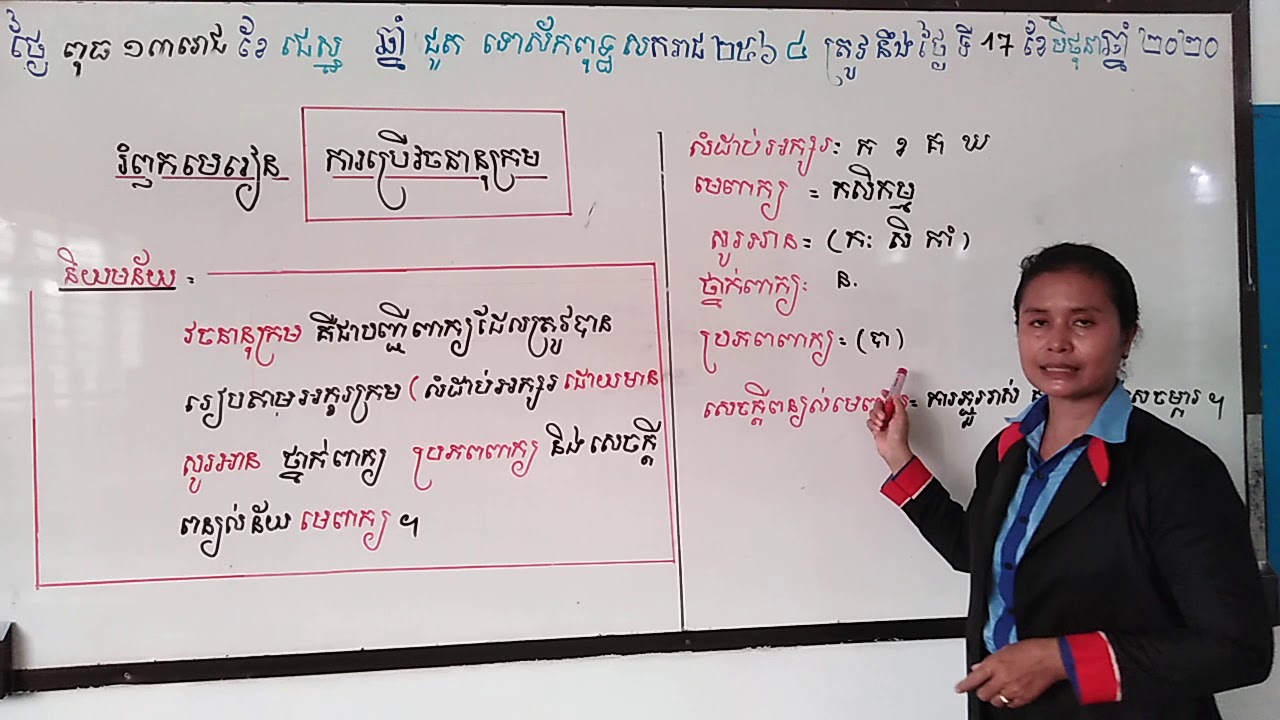 ថ្ងៃ ពុធ ១៣រោច ខែ ជេស្ឋ ឆ្នាំ ជូត ទោស័កពុទ្ធសករាជ ២៥៦៤ ត្រូវនឹងថ្ងៃ ទី 17 ខែមិថុនាឆ្នាំ ២០២០
រំឭកមេរៀន ការប្រើវចនានុក្រម
និយមន័យ :
វចនានុក្រម គឺជាបញ្ជីពាក្យដែលត្រូវបាន
រៀបតាមអក្ខរក្រម (លំដាប់អក្សរ ដោយមាន
សូរអាន ថ្នាក់ពាក្យ ប្រភពពាក្យ និង សេចក្តី
ពន្យល់ន័យ មេពាក្យ ។
លំដាប់អក្សរ: ក ខ គ ឃ
មេពាក្យ = កសិកម្ម
សូរអាន= (កៈ សិ កាំ)
ថ្នាក់ពាក្យ: ន.
ប្រភពពាក្យ= (បា)
សេចក្តីពន្យល់ = ការភ្ជួររាស់ ។